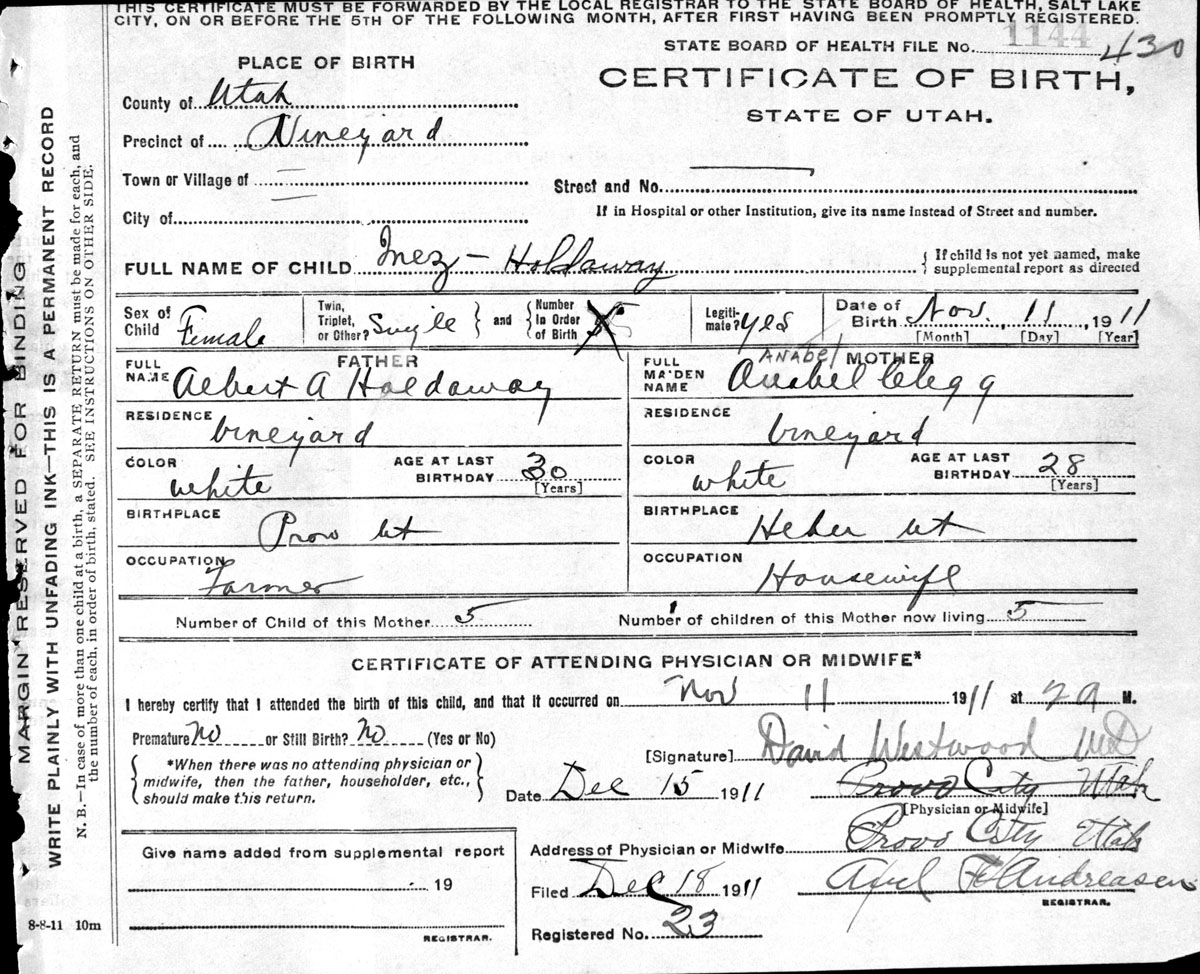 THIS CERTIFICATE MUST BE FORWARDED BY THE LOCAL REGISTRAR TO THE STATE BOARD OF HEALTH, SALT LAKE
CITY, ON OR BEFORE THE 5TH OF THE FOLLOWING MONTH, AFTER FIRST HAVING BEEN PROMPTLY REGISTERED.
STATE BOARD OF HEALTH FILE No. 1144 430
PLACE OF BIRTH
CERTIFICATE OF BIRTH,
STATE OF UTAH.
County of Utah
Precinct of Vineyard
Town or Village of
Street and No.
City of
If in Hospital or other Institution, give its name instead of Street and number.
FULL NAME OF CHILD Inez - Holdaway
If child is not yet named, make
supplemental report as directed
Sex of Child Female
Twin, Triplet, or Other? Single and Number In Order of Birth 5
Legiti-mate? Yes
Date of Birth Nov. 11, 1911
[Month] [Day] [Year]
FATHER
FULL NAME Albert A Holdaway
RESIDENCE Vineyard
COLOR white
AGE AT LAST BIRTHDAY 30
[Years]
BIRTHPLACE Provo Ut
OCCUPATION Farmer
MOTHER
ANABEL
FULL MAIDEN NAME Anabel Clegg
RESIDENCE Vineyard
COLOR white
AGE AT LAST BIRTHDAY 28
[Years]
BIRTHPLACE Heber Ut
OCCUPATION Housewife
Number of Child of this Mother 5
Number of children of this Mother now living 5
CERTIFICATE OF ATTENDING PHYSICIAN OR MIDWIFE*
I hereby certify that I attended the birth of this child, and that it occurred on Nov 11 1911 at 7 A M.
Premature No or Still Birth? No (Yes or No)
*When there was no attending physician or
midwife, then the father, householder, etc.,
should make this return.
[Signature] David Westwood MD
Provo City Utah
[Physician or Midwife]
Date Dec 15 1911
Address of Physician or Midwife Provo City Utah
Give name added from supplemental report
19
REGISTRAR.
Filed Dec 18 1911
Andreasen
REGISTRAR.
Registered No. 23
8-8-11 10m
MARGIN RESERVED FOR BINDING
WRITE PLAINLY WITH UNFADING INK—THIS IS A PERMANENT RECORD
N. B.—In case of more than one child at a birth, a SEPARATE RETURN must be made for each, and
the number of each, in order of birth, stated. SEE INSTRUCTIONS ON OTHER SIDE.